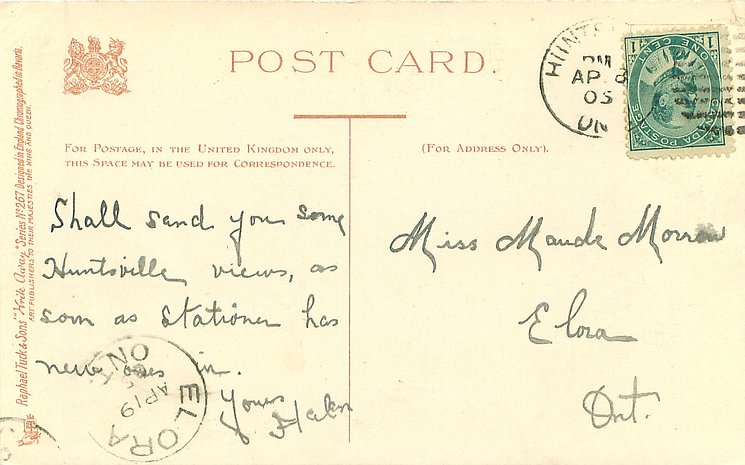 POST CARD.
FOR POSTAGE, IN THE UNITED KINGDOM ONLY,
THIS SPACE MAY BE USED FOR CORRESPONDENCE.
(FOR ADDRESS ONLY).
Shall send you some
Huntsville views, as
soon as stationer has
new ones in.
Yours
Helen
Miss Maude Morrow
Elora
Ont.
Raphael Tuck & Sons' "Write Away" Series No 267 Designed in England Chromographed in Bavaria.
ART PUBLISHERS TO THEIR MAJESTIES THE KING AND QUEEN.
PM
AP 8
05
ON
1 ONE CENT 1
CANADA POSTAGE
ELORA
AP 19
ON